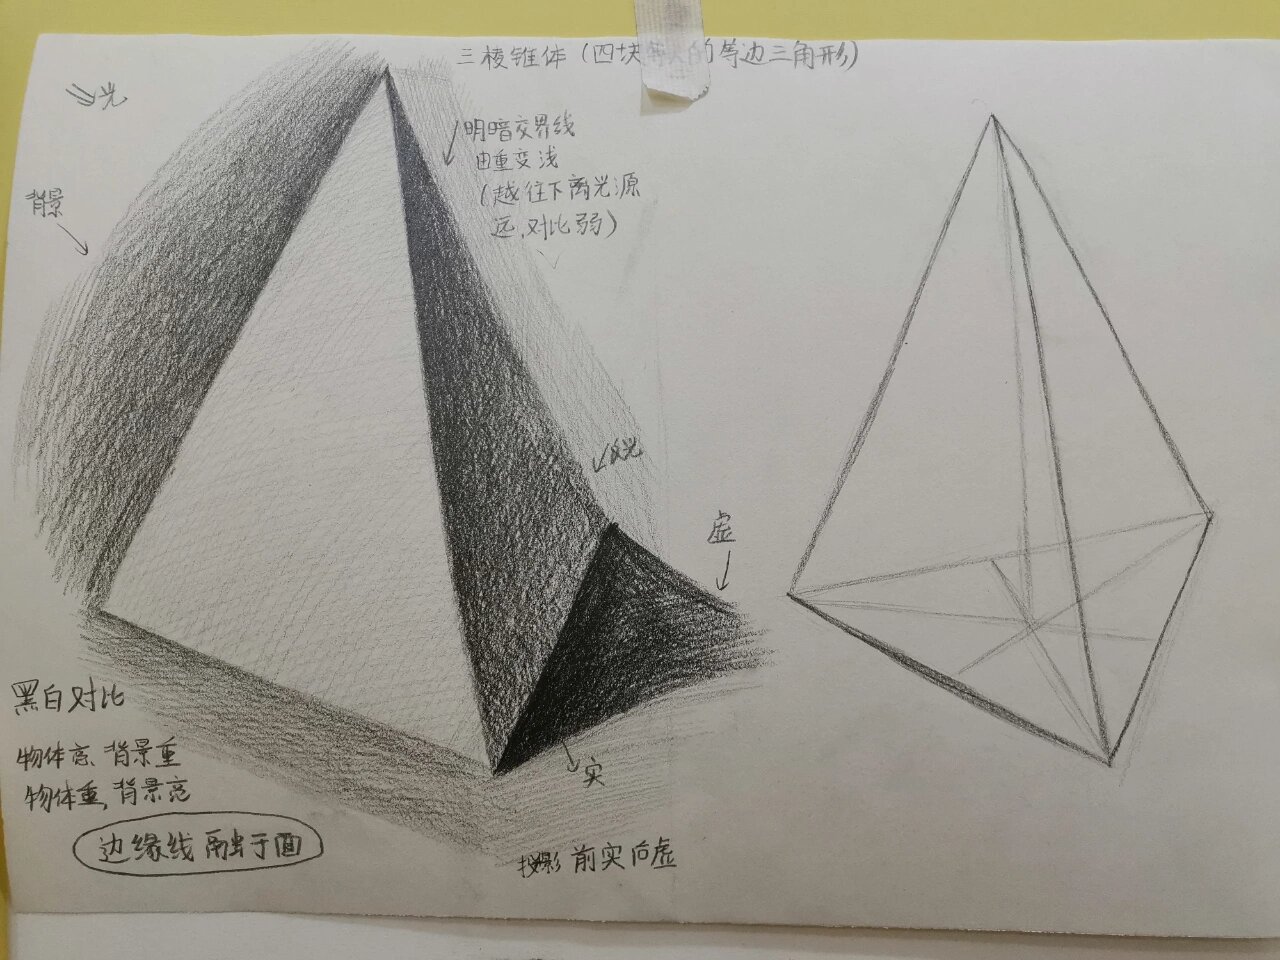 三棱锥体（四块等大的等边三角形）
光
明暗交界线
由重变浅
（越往下离光源
远,对比弱）
背景
反光
虚
黑白对比
物体亮、背景重
物体重,背景亮
实
边缘线融于面
投影 前实后虚